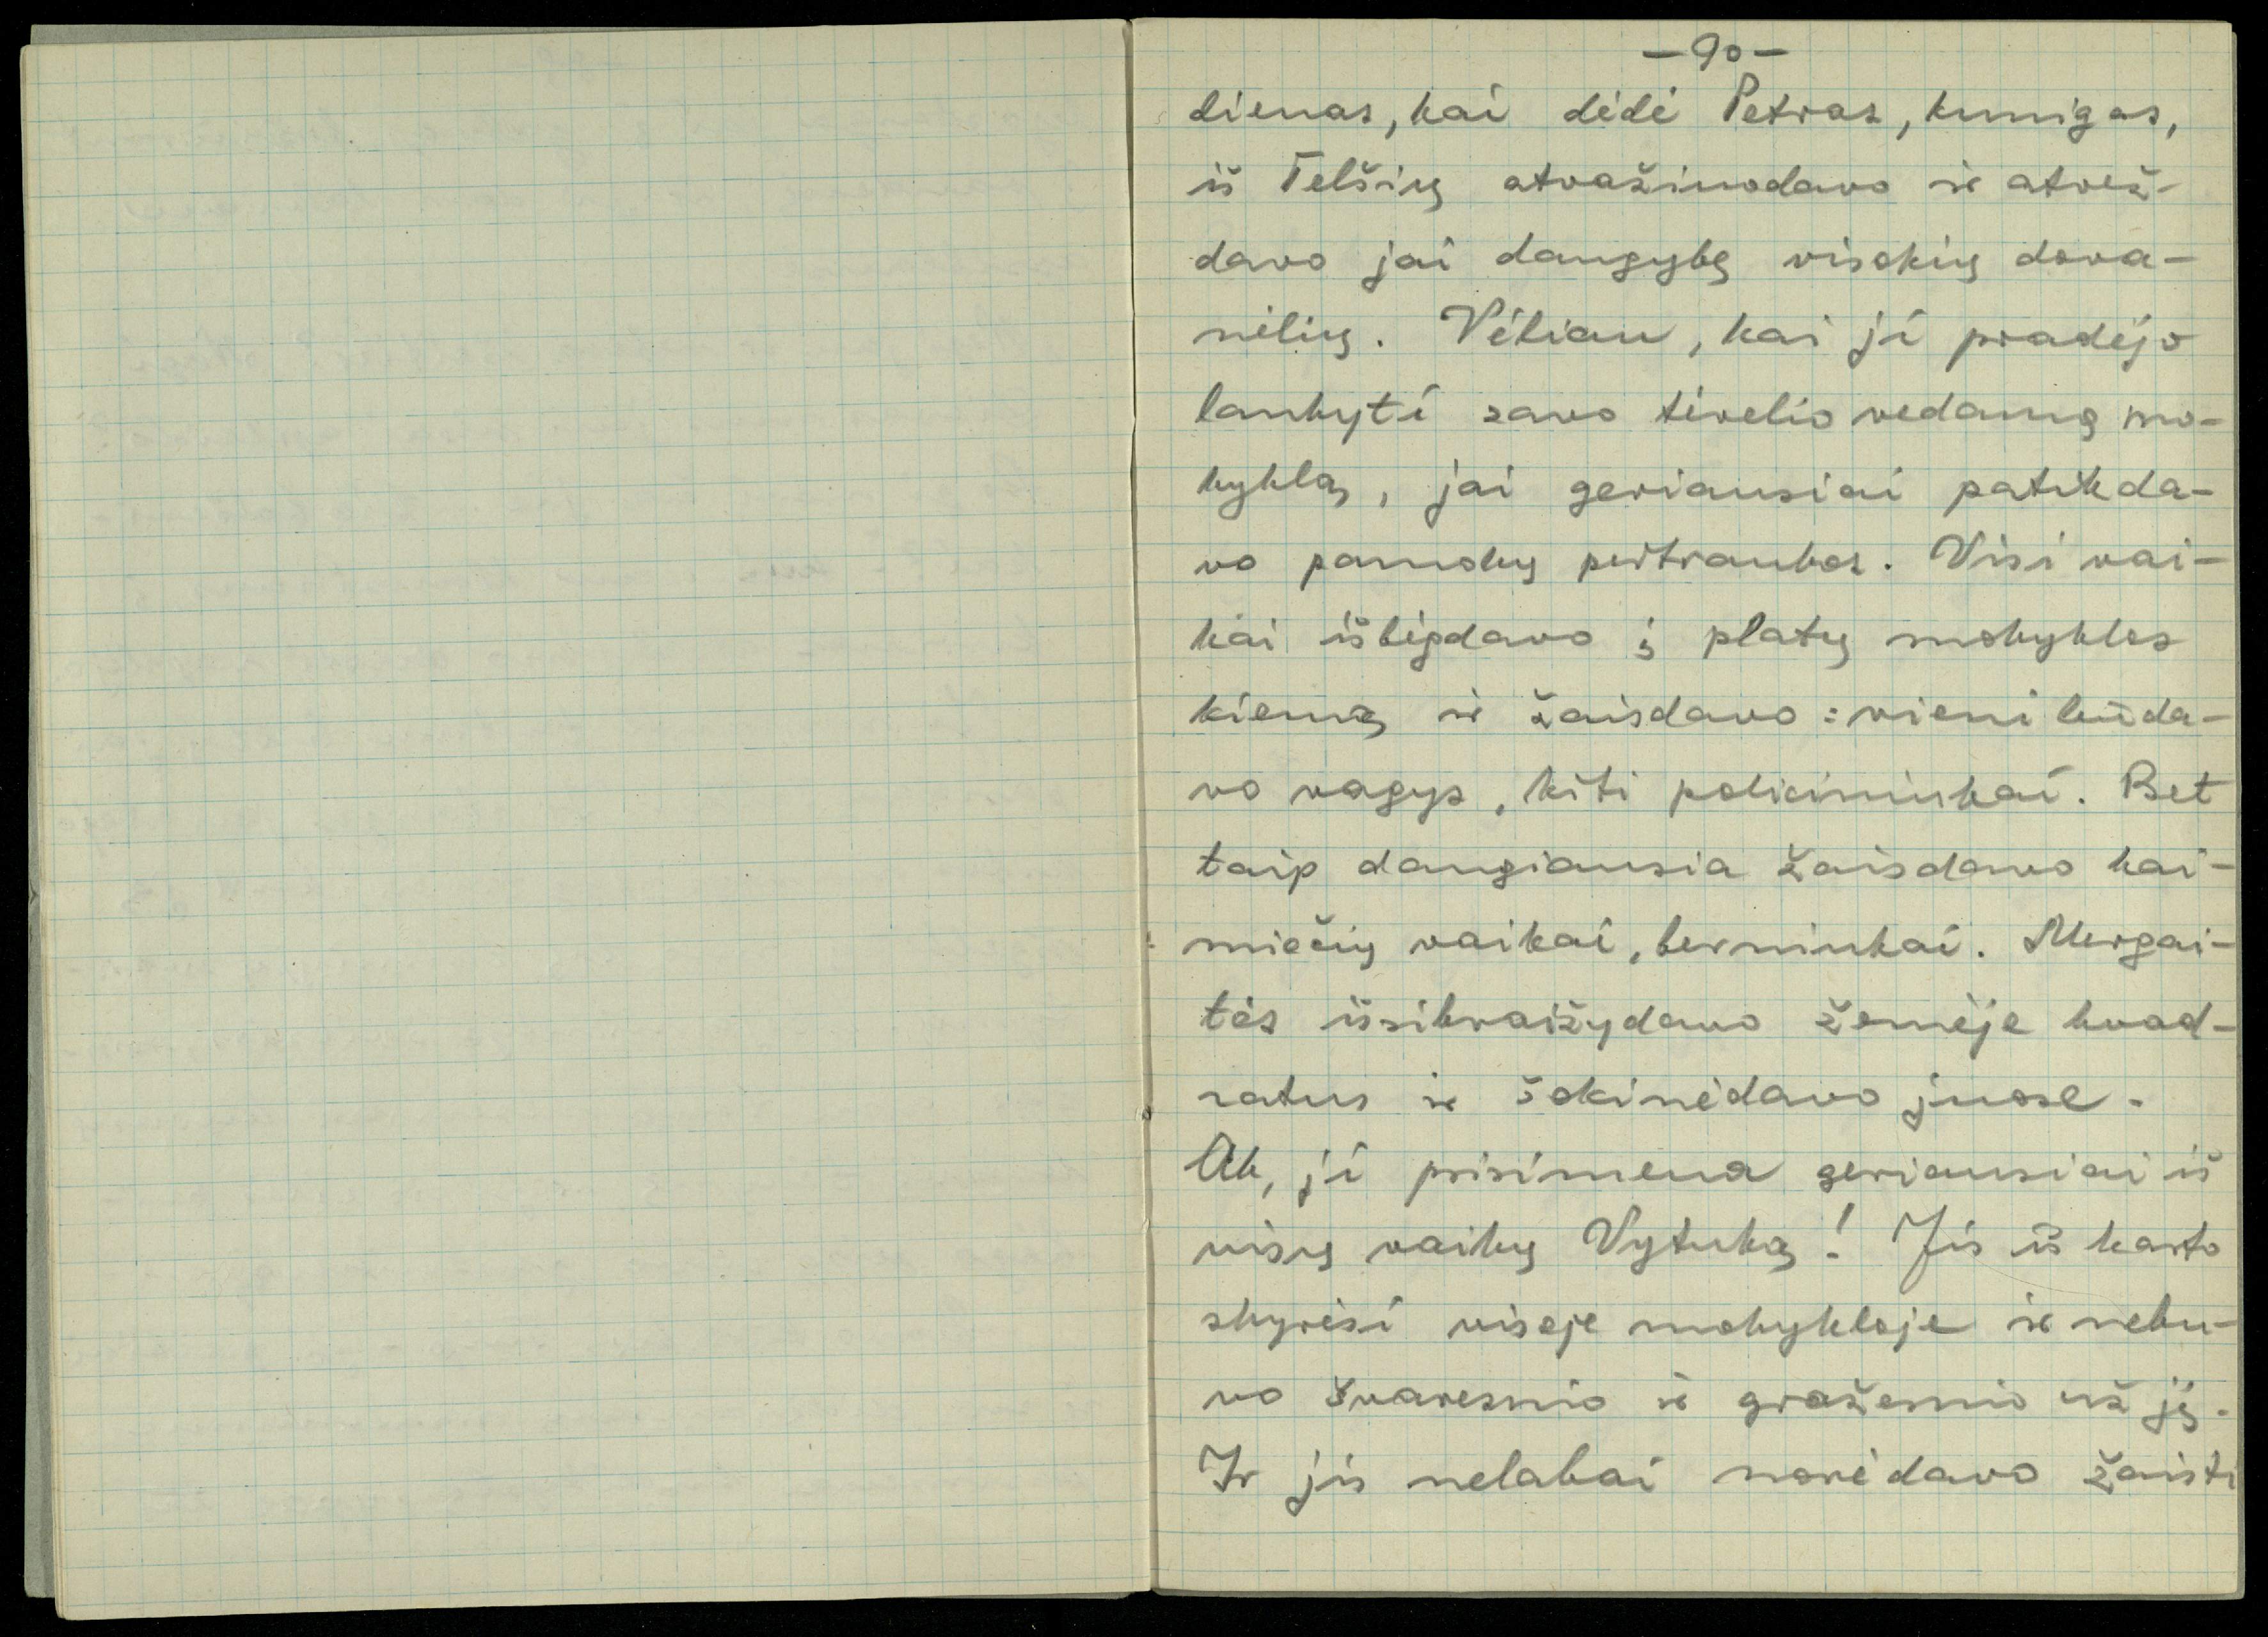 —90—
dienas, kai dėdė Petras, kunigas,
iš Telšių atvažinodavo ir atvež-
davo jai daugybę visokių dova-
nėlių. Vėliau, kai ji pradėjo
lankyti savo tėvelio vedamą mo-
kyklą, jai geriausiai patikda-
vo pamokų pertraukos. Visi vai-
kai išbėgdavo į platų mokyklos
kiemą ir žaisdavo: vieni būda-
vo vagys, kiti policininkai. Bet
taip daugiausia žaisdavo kai-
miečių vaikai, berniukai. Mergai-
tės išsibraižydavo žemėje kvad-
ratus ir šokinėdavo juose.
Ak, ji prisimena geriausiai iš
visų vaikų Vytuką! Jis iš karto
skyrėsi visoje mokykloje ir nebu-
vo švaresnio ir gražesnio už jį.
Ir jis nelabai norėdavo žaisti